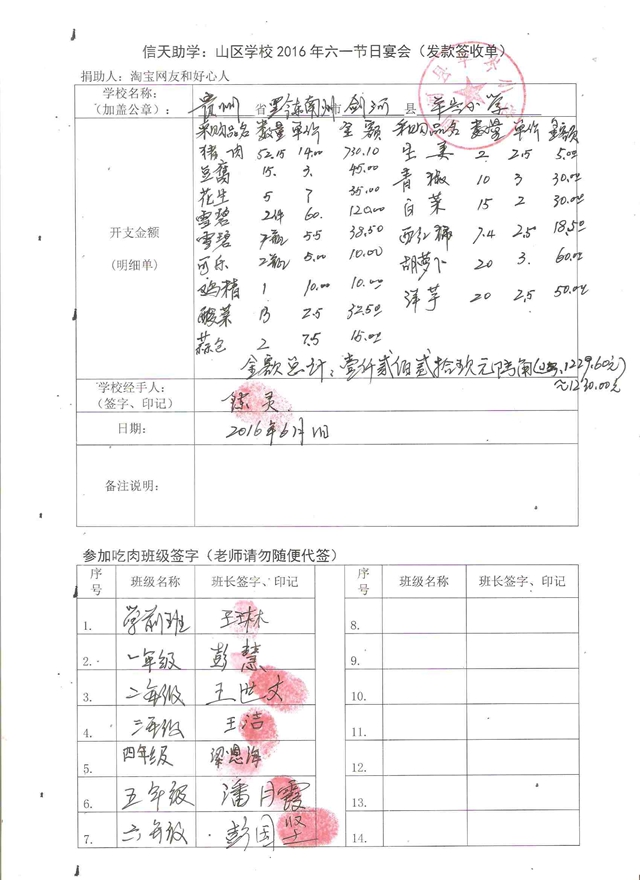 信天助学：山区学校2016年六一节日宴会（发款签收单）
捐助人：淘宝网友和好心人
学校名称：
（加盖公章）： 贵州 省 黔东南州 剑河 县 小学
采购品名 数量 单价 金额 采购品名 数量 单价 金额
猪肉 52.15 14.00 730.10 生姜 2 2.5 5.00
豆腐 15. 3. 45.00 青椒 10 3 30.00
花生 5 7 35.00 白菜 15 2 30.00
雪碧 2件 60. 120.00 西红柿 7.4 2.5 18.50
雪碧 7瓶 5.5 38.50 胡萝卜 20 3. 60.00
可乐 2瓶 5.00 10.00 洋芋 20 2.5 50.00
鸡精 1 10.00 10.00
酸菜 13 2.5 32.50
蒜仓 2 7.5 15.00
开支金额
（明细单）
金额总计：壹仟贰佰贰拾玖元陆角 1229.60元)
≈1230.00元
学校经手人：
（签字、印记） 灵
日期： 2016年6月1日
备注说明：
参加吃肉班级签字（老师请勿随便代签）
序号 班级名称 班长签字、印记 序号 班级名称 班长签字、印记
1. 学前班 王琳 8.
2. 一年级 彭慧 9.
3. 二年级 王世文 10.
4. 三年级 王洁 11.
5 四年级 梁恩海 12.
6. 五年级 潘月霞 13.
7. 六年级 彭国坚 14.